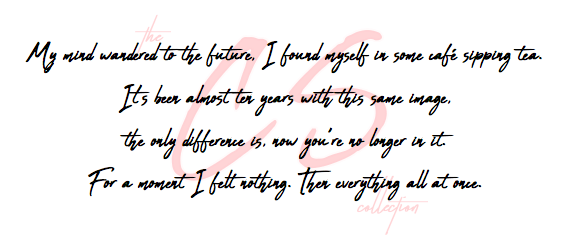 the
CS
My mind wandered to the future, I found myself in some café sipping tea.
It's been almost ten years with this same image,
the only difference is, now you're no longer in it.
For a moment I felt nothing. Then everything all at once.
collection